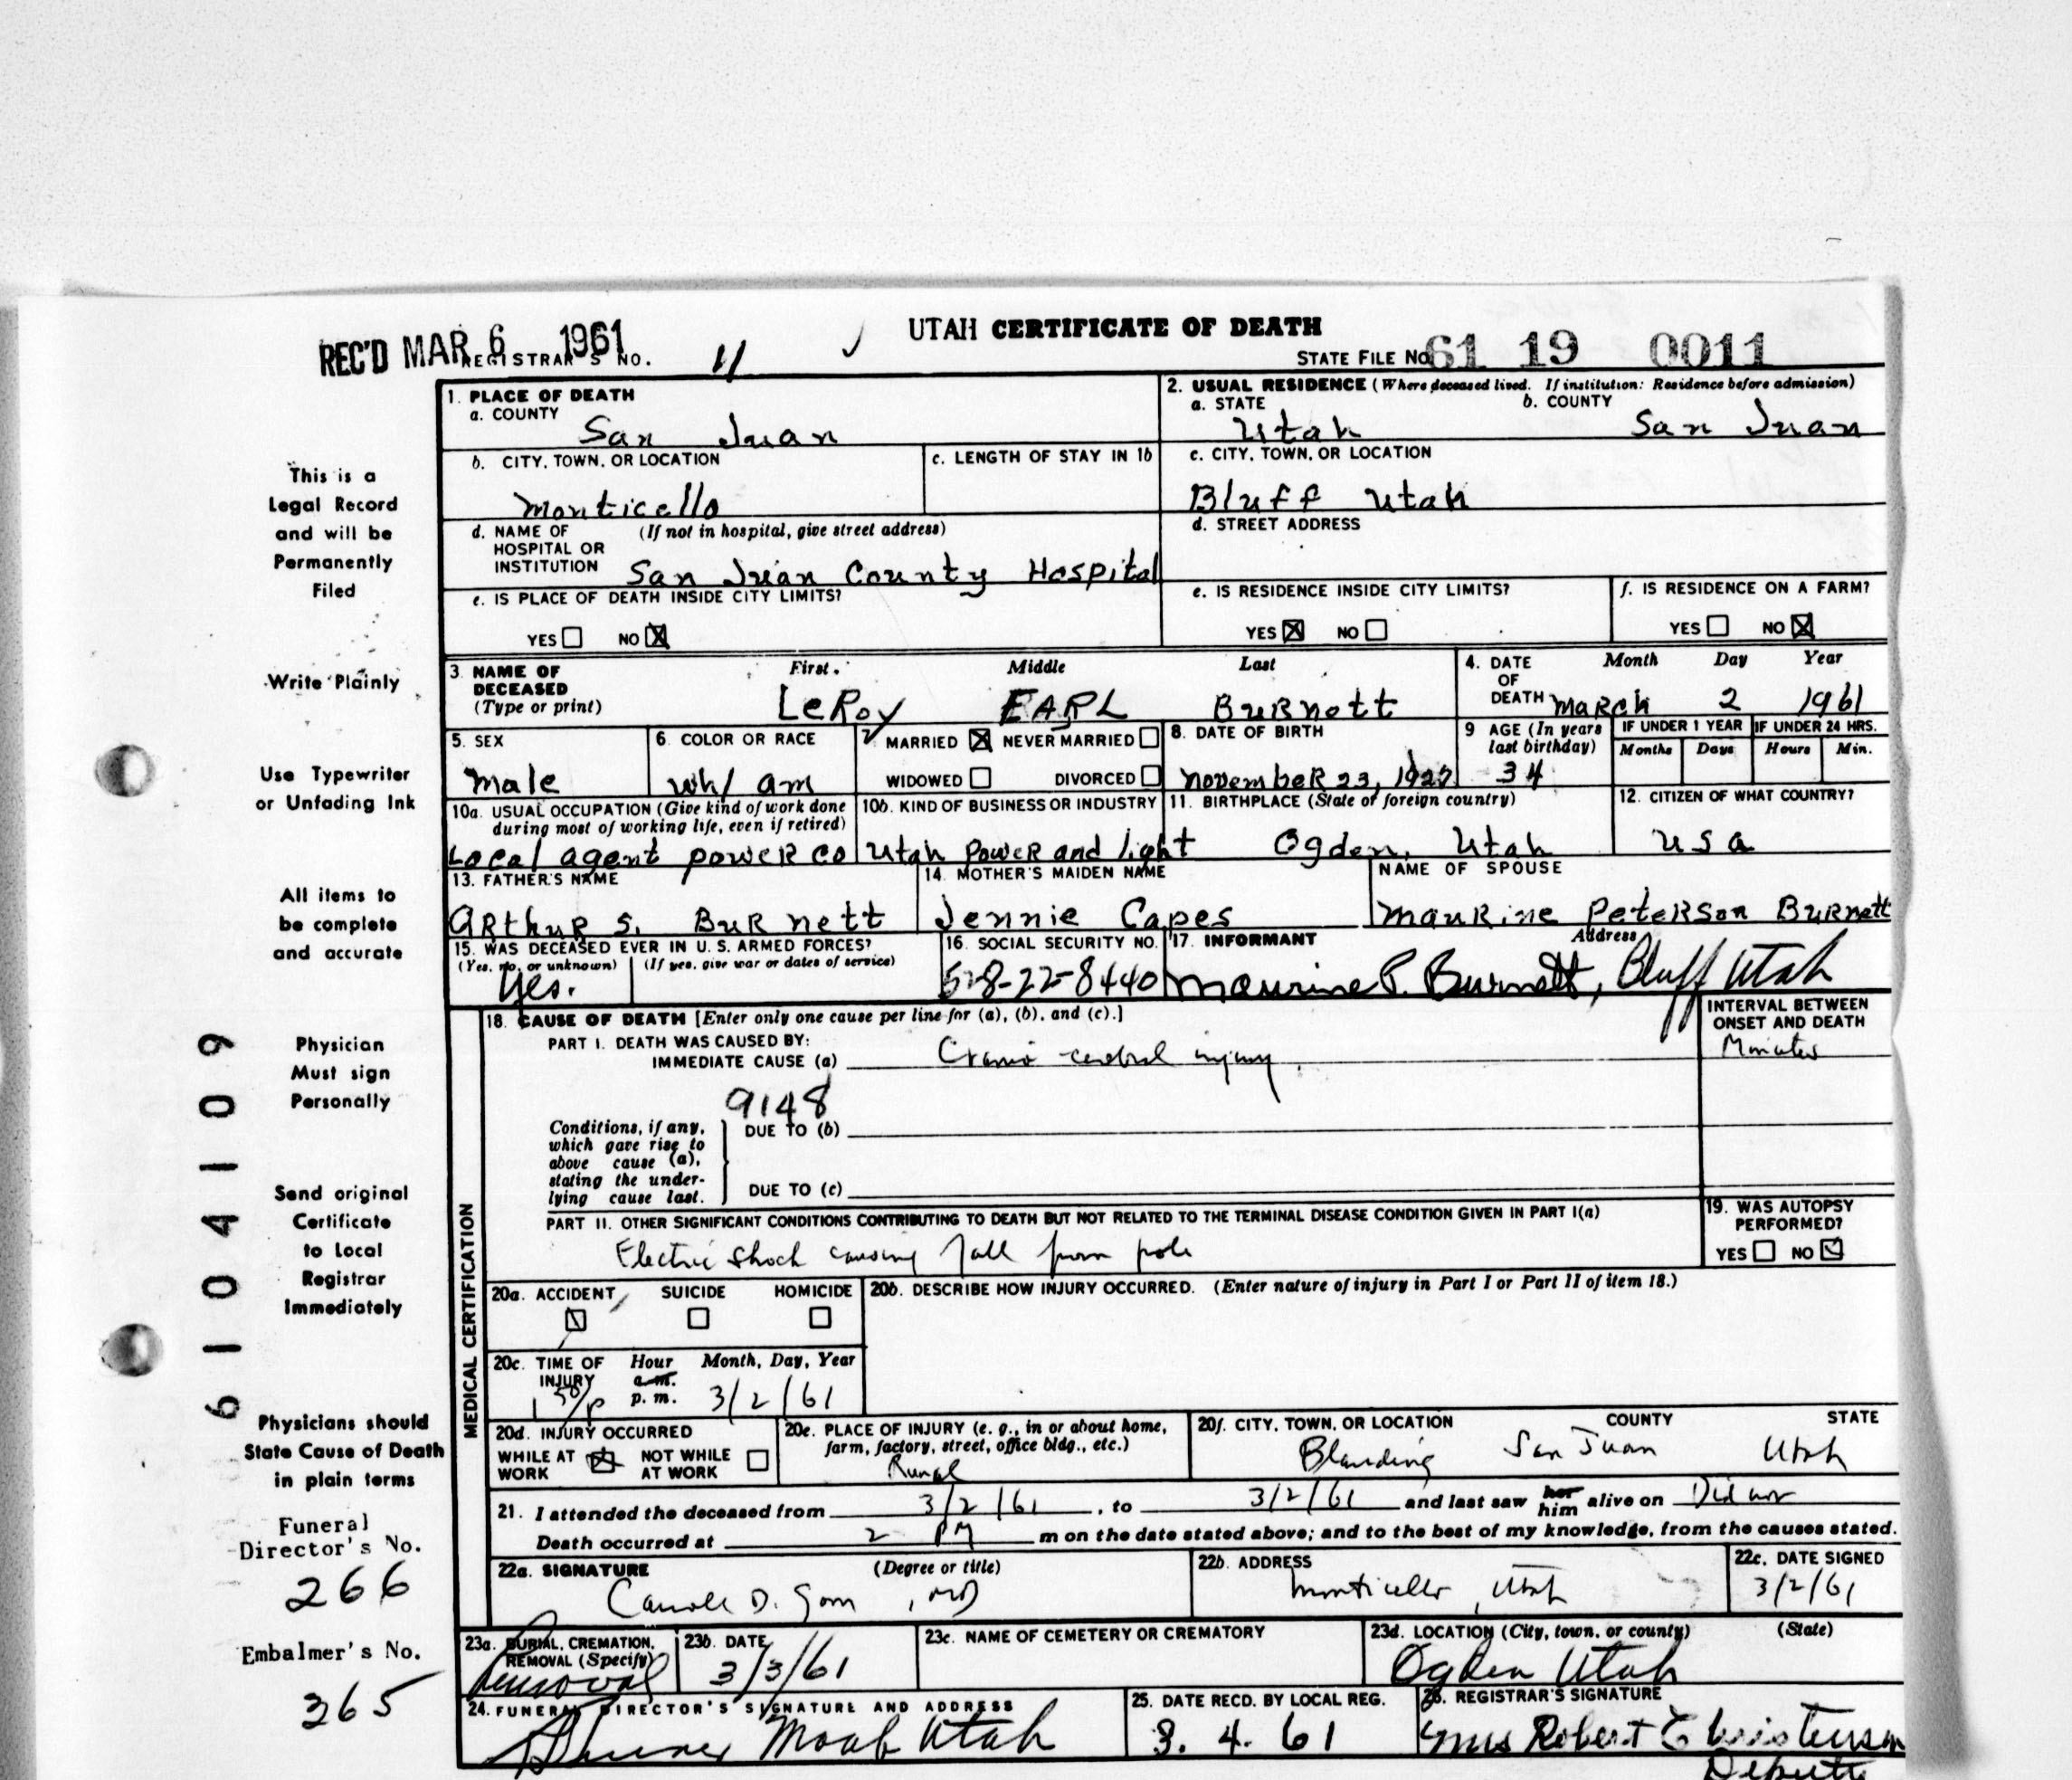 REC'D MAR 6 1961
REGISTRAR'S NO. 11
UTAH CERTIFICATE OF DEATH
STATE FILE NO. 61 19 0011
This is a
Legal Record
and will be
Permanently
Filed
Write Plainly
Use Typewriter
or Unfading Ink
All items to
be complete
and accurate
Physician
Must sign
Personally
Send original
Certificate
to Local
Registrar
Immediately
Physicians should
State Cause of Death
in plain terms
Funeral
Director's No.
266
Embalmer's No.
365
6104109
1. PLACE OF DEATH
a. COUNTY
San Juan
2. USUAL RESIDENCE (Where deceased lived. If institution: Residence before admission)
a. STATE b. COUNTY
Utah San Juan
b. CITY, TOWN, OR LOCATION
Monticello
c. LENGTH OF STAY IN 1b
c. CITY, TOWN, OR LOCATION
Bluff Utah
d. NAME OF (If not in hospital, give street address)
HOSPITAL OR
INSTITUTION San Juan County Hospital
d. STREET ADDRESS
e. IS PLACE OF DEATH INSIDE CITY LIMITS?
YES NO X
e. IS RESIDENCE INSIDE CITY LIMITS?
YES X NO
f. IS RESIDENCE ON A FARM?
YES NO X
3. NAME OF First Middle Last
DECEASED
(Type or print) LeRoy EARL BURNETT
4. DATE Month Day Year
OF
DEATH MARCH 2 1961
5. SEX
Male
6. COLOR OR RACE
wh/ am
7. MARRIED X NEVER MARRIED
WIDOWED DIVORCED
8. DATE OF BIRTH
November 23, 1927
9 AGE (In years
last birthday)
34
IF UNDER 1 YEAR IF UNDER 24 HRS.
Months Days Hours Min.
10a. USUAL OCCUPATION (Give kind of work done
during most of working life, even if retired)
Local agent power co
10b. KIND OF BUSINESS OR INDUSTRY
Utah Power and light
11. BIRTHPLACE (State of foreign country)
Ogden, Utah
12. CITIZEN OF WHAT COUNTRY?
USA
13. FATHER'S NAME
Arthur S. Burnett
14. MOTHER'S MAIDEN NAME
Jennie Capes
NAME OF SPOUSE
Maurine Peterson Burnett
15. WAS DECEASED EVER IN U.S. ARMED FORCES?
(Yes, no, or unknown) (If yes, give war or dates of service)
Yes.
16. SOCIAL SECURITY NO.
528-22-8440
17. INFORMANT Address
Maurine P. Burnett, Bluff Utah
MEDICAL CERTIFICATION
18. CAUSE OF DEATH [Enter only one cause per line for (a), (b), and (c).]
PART I. DEATH WAS CAUSED BY:
IMMEDIATE CAUSE (a) Cranio-cerebral injury
INTERVAL BETWEEN
ONSET AND DEATH
Minutes
9148
Conditions, if any,
which gave rise to
above cause (a),
stating the under-
lying cause last.
DUE TO (b)
DUE TO (c)
PART II. OTHER SIGNIFICANT CONDITIONS CONTRIBUTING TO DEATH BUT NOT RELATED TO THE TERMINAL DISEASE CONDITION GIVEN IN PART I(a)
Electric shock causing fall from pole
19. WAS AUTOPSY
PERFORMED?
YES NO
20a. ACCIDENT SUICIDE HOMICIDE
20b. DESCRIBE HOW INJURY OCCURRED. (Enter nature of injury in Part I or Part II of item 18.)
20c. TIME OF Hour Month, Day, Year
INJURY a.m.
1 50/p p.m. 3/2/61
20d. INJURY OCCURRED
WHILE AT NOT WHILE
WORK AT WORK
20e. PLACE OF INJURY (e. g., in or about home,
farm, factory, street, office bldg., etc.)
Rural
20f. CITY, TOWN, OR LOCATION COUNTY STATE
Blanding San Juan Utah
21. I attended the deceased from 3/2/61, to 3/2/61 and last saw her him alive on Did not
Death occurred at 2 PM m on the date stated above; and to the best of my knowledge, from the causes stated.
22a. SIGNATURE (Degree or title)
D. , MD
22b. ADDRESS
Monticello, Utah
22c. DATE SIGNED
3/2/61
23a. BURIAL, CREMATION,
REMOVAL (Specify)
Removal
23b. DATE
3/3/61
23c. NAME OF CEMETERY OR CREMATORY
23d. LOCATION (City, town, or county) (State)
Ogden Utah
24. FUNERAL DIRECTOR'S SIGNATURE AND ADDRESS
Moab Utah
25. DATE RECD. BY LOCAL REG.
3. 4. 61
26. REGISTRAR'S SIGNATURE
Mrs Robert Christensen
Deputy